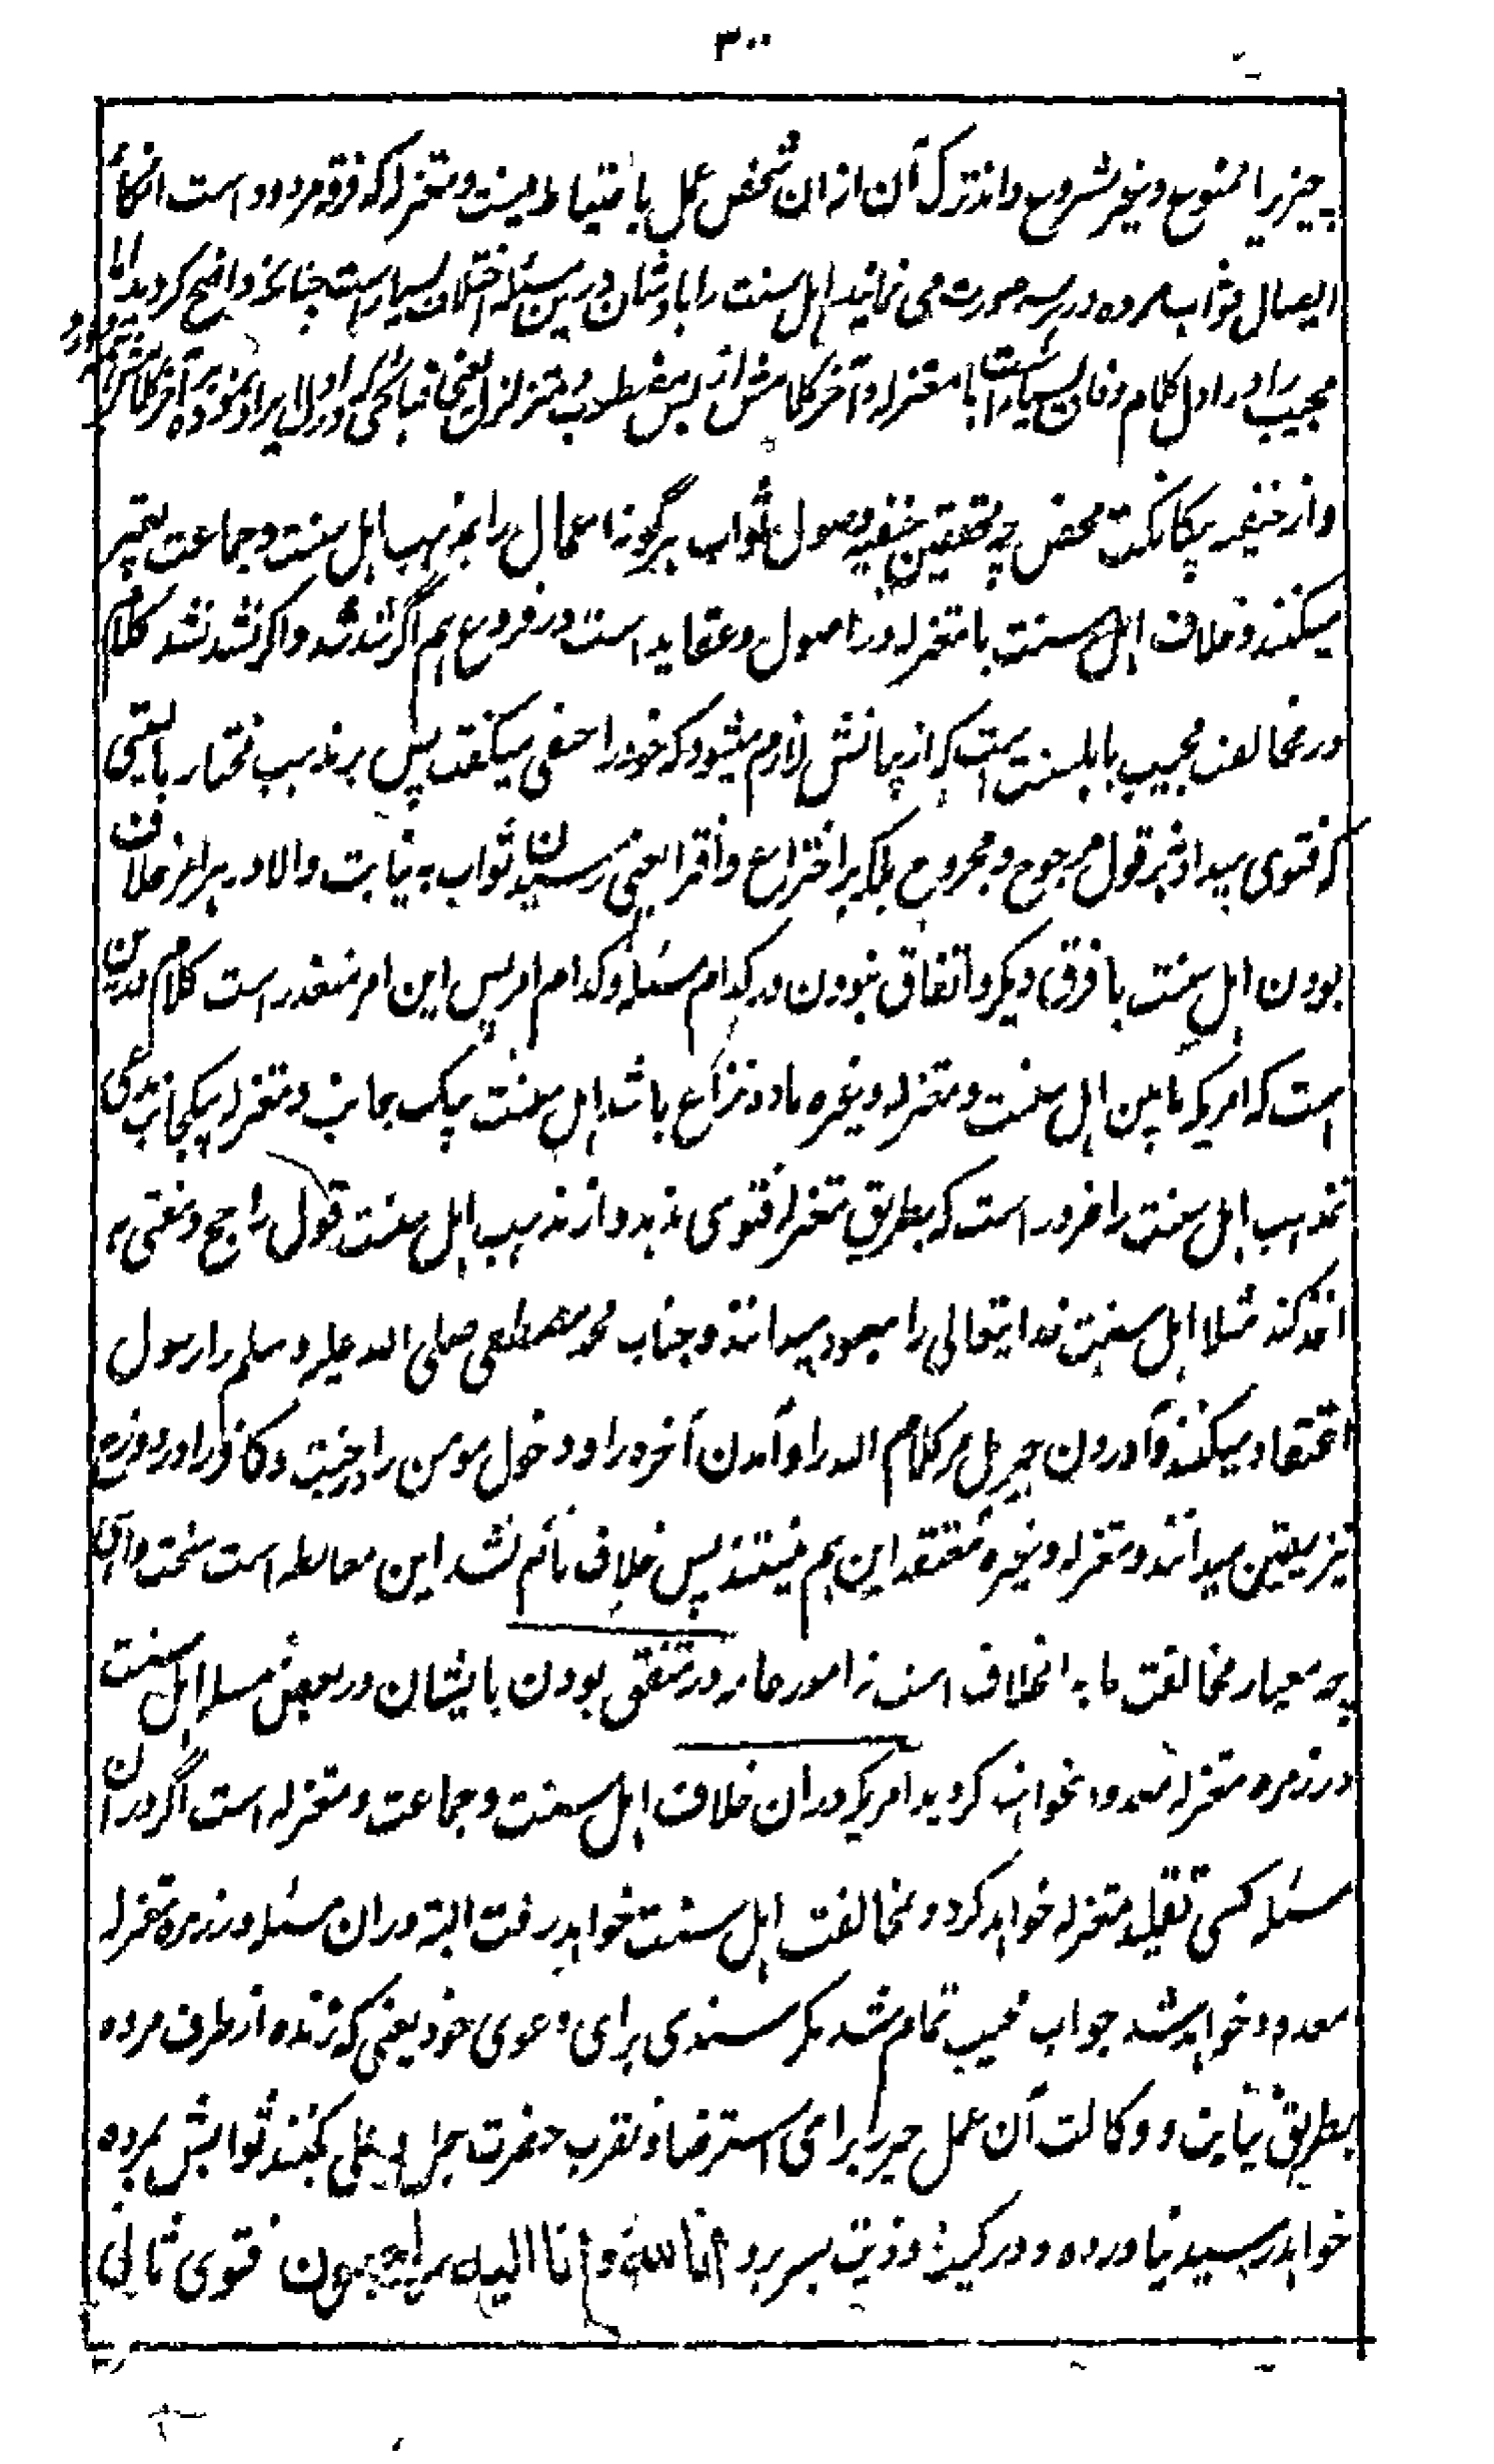 ٣٠٠
چیزیرا ممنوع و غیر مشروع داند ترک آن ازان شخص عمل با متیاط نیست و معتزله که فرقه مردود است انکار
ایصال ثواب مرده در هر سه صورت می نمایند اهل سنت را با وشان درین مسئله اختلاف بسیار است چنانچه واضح کردید اما
مجیب را در اول کلام وفاق با معتزله و آخر کلامش از بس مضطرب و متزلزل یعنی
و از حنیفه یکانکت محض چه محققین حنفیه وصول ثواب هرگونه اعمال را بمذهب اهل سنت و جماعت تعبیر
میکنند و خلاف اهل سنت با معتزله در اصول و عقاید است در فروع هم اگر شد شد و اکر نشد نشد کلام
در مخالفت مجیب با اهلسنت است که از بیانش لازم میشود که خود را حنفی میکفت پس بر مذهب مختار بایستی
که فتوی میداد نه بر قول مرجوح و مجروح بلکه بر اختراع و افترا یعنی رسیدن ثواب به نیابت والا در هر امر خلاف
بودن اهل سنت با فرق دیکر و اتفاق نبودن در کدام مسئله و کدام امر پس این امر متعذر است کلام درین
است که امریکه مابین اهل سنت و معتزله و غیره ماده نزاع باشد اهل سنت بیک جانب و معتزله بیکجانب
تمذهب اهل سنت را ضرور است که بطریق معتزله فتوی ندهد و از مذهب اهل سنت قول راجح و مفتی به
اخذ کند مثلا اهل سنت خدایتعالی را معبود میدانند و جناب محمد مصطفی صلی الله علیه و سلم را رسول
اعتقاد میکنند و آوردن جبریل مر کلام الله را و آمدن آخره را و دخول مومن را در جنت و کافر را در دوزخ
نیز بیقین میدانند و معتزله و غیره معتقد این هم نیستند پس خلاف نماند نشد این مغالطه است سخت
چه معیار مخالفت ما به الخلاف است نه امور عامه و در متفق بودن با یشان در بعض مسله اهل سنت
در زمره معتزله معدود نخواهند کردید امریکه دران خلاف اهل سنت و جماعت و معتزله است اگر دران
مسئله کسی تقلید معتزله خواهد کرد و مخالفت اهل سنت خواهد رفت البته دران مسئله در زمره معتزله
معدود خواهد شد جواب مجیب تمام شد مکر سندی برای دعوی خود یعنی که زنده از طرف مرده
بطریق نیابت و وکالت آن عمل خیر را برای استرضا و تقرب حضرت جل و علی بکند ثوابش بمرده
خواهد رسید نیاورده و در کینه و ذیت بسر برد انا لله و انا الیه راجعون فتوی ثانی